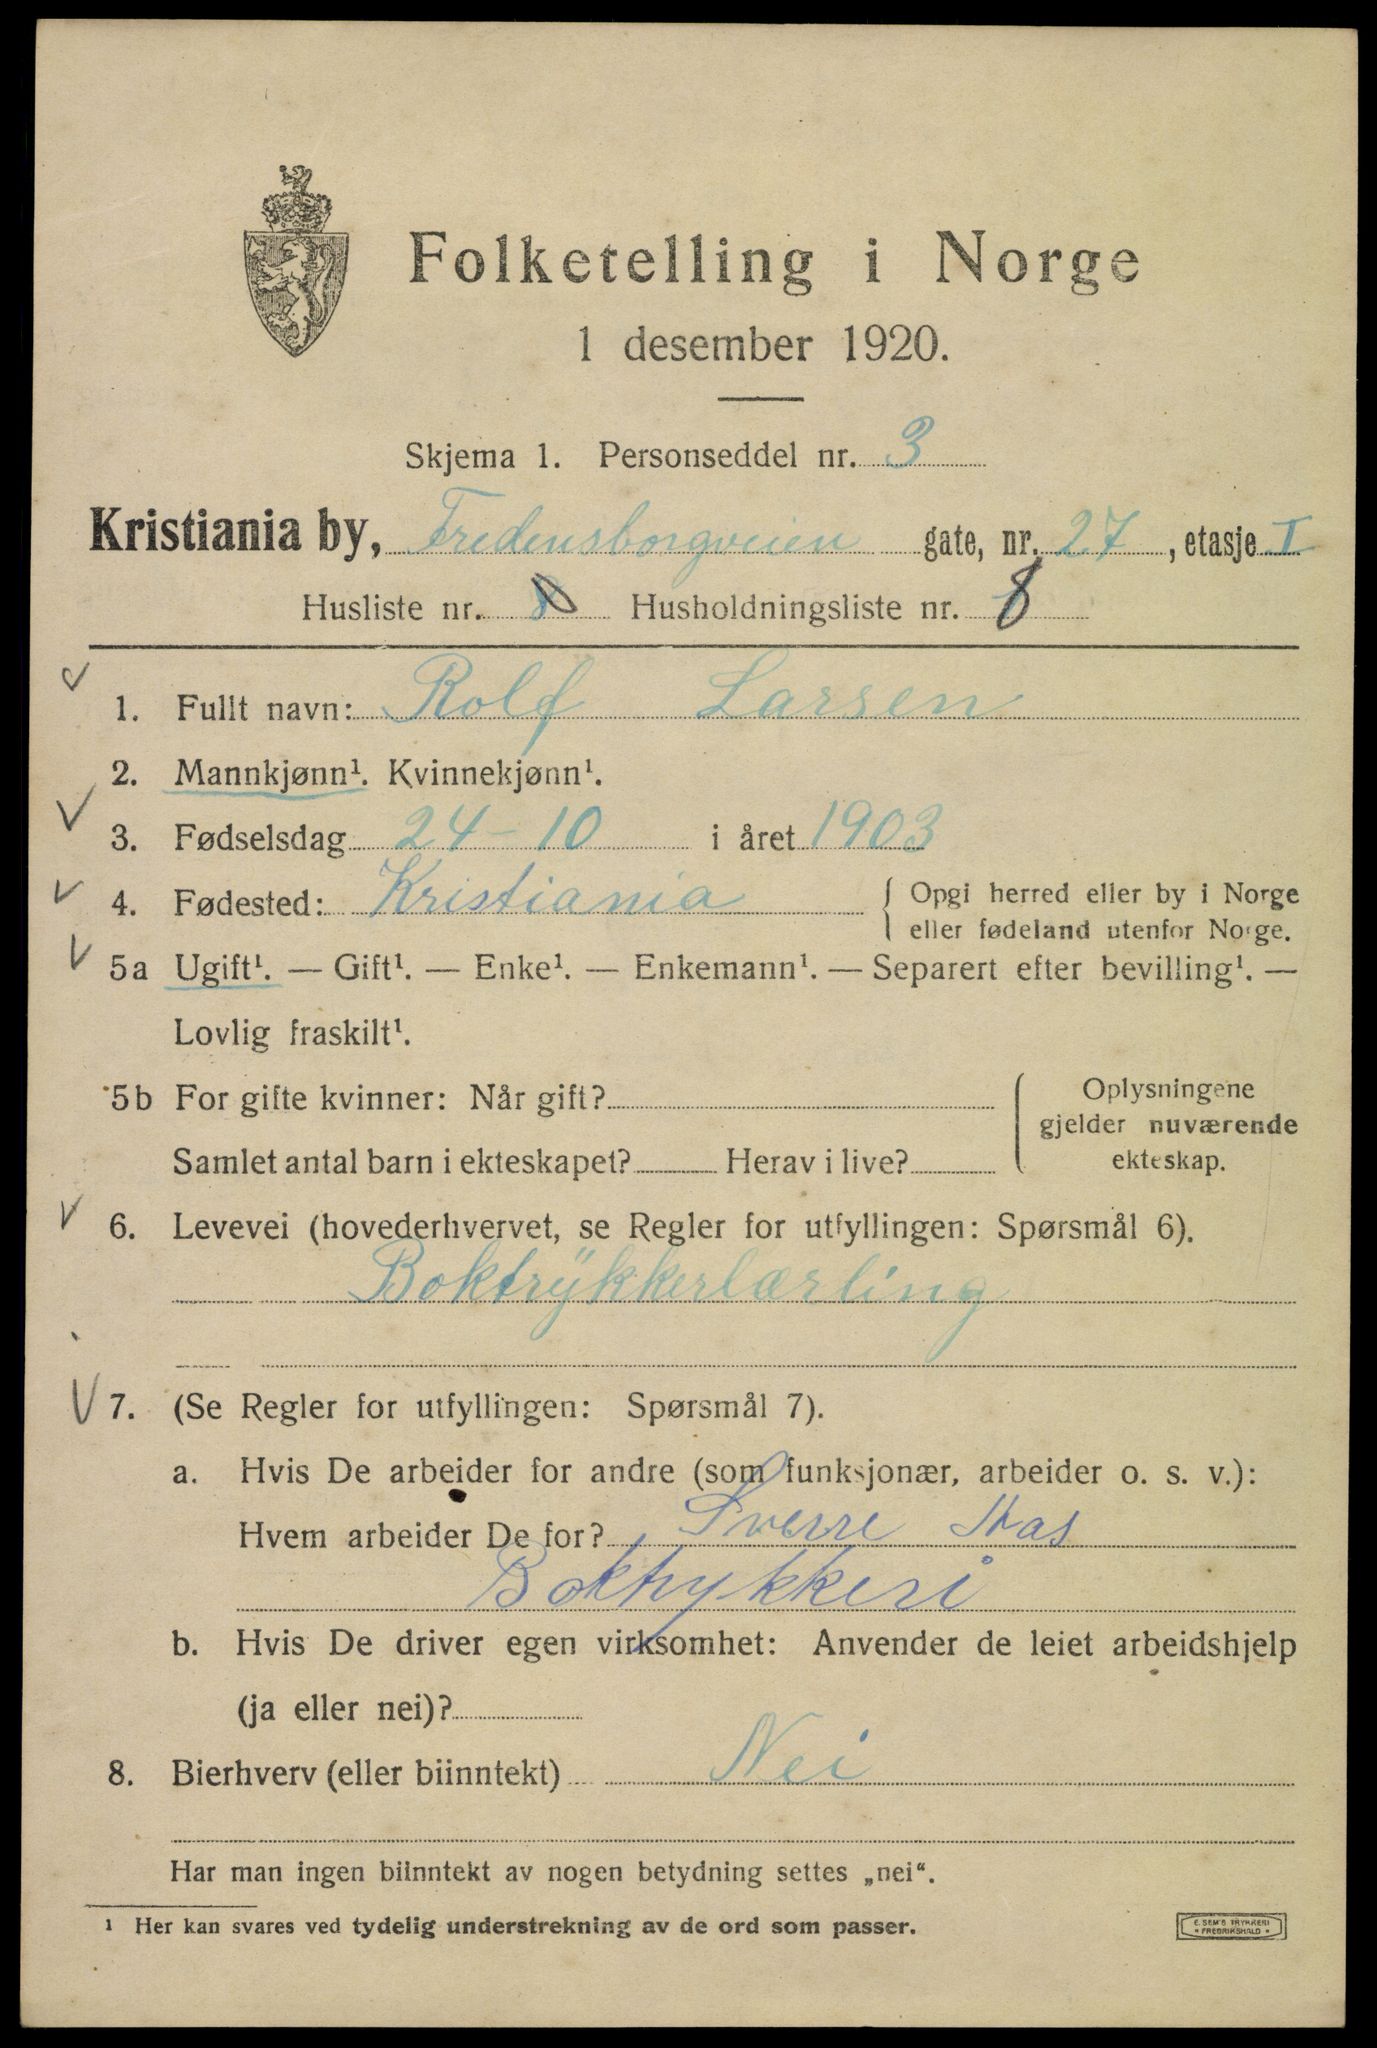 Folketelling i Norge
1 desember 1920.
Skjema 1. Personseddel nr. 3
Kristiania by, Fredensborgveien gate, nr. 27, etasje I
Husliste nr. Husholdningsliste nr. 8
1. Fullt navn: Rolf Larsen
2. Mannkjønn¹. Kvinnekjønn¹.
3. Fødselsdag 24-10 i året 1903
4. Fødested: Kristiania { Opgi herred eller by i Norge
eller fødeland utenfor Norge.
5a Ugift¹. — Gift¹. — Enke¹. — Enkemann¹. — Separert efter bevilling¹. —
Lovlig fraskilt¹.
5b For gifte kvinner: Når gift? Oplysningene
gjelder nuværende
Samlet antal barn i ekteskapet? Herav i live? ekteskap.
6. Levevei (hovederhvervet, se Regler for utfyllingen: Spørsmål 6).
Boktrÿkkerlærling
7. (Se Regler for utfyllingen: Spørsmål 7).
a. Hvis De arbeider for andre (som funksjonær, arbeider o. s. v.):
Hvem arbeider De for? Sverre
Boktrykkeri
b. Hvis De driver egen virksomhet: Anvender de leiet arbeidshjelp
(ja eller nei)?
8. Bierhverv (eller biinntekt) Nei
Har man ingen biinntekt av nogen betydning settes „nei“.
¹ Her kan svares ved tydelig understrekning av de ord som passer.
E. SEM'S TRYKKERI
* FREDRIKSHALD *